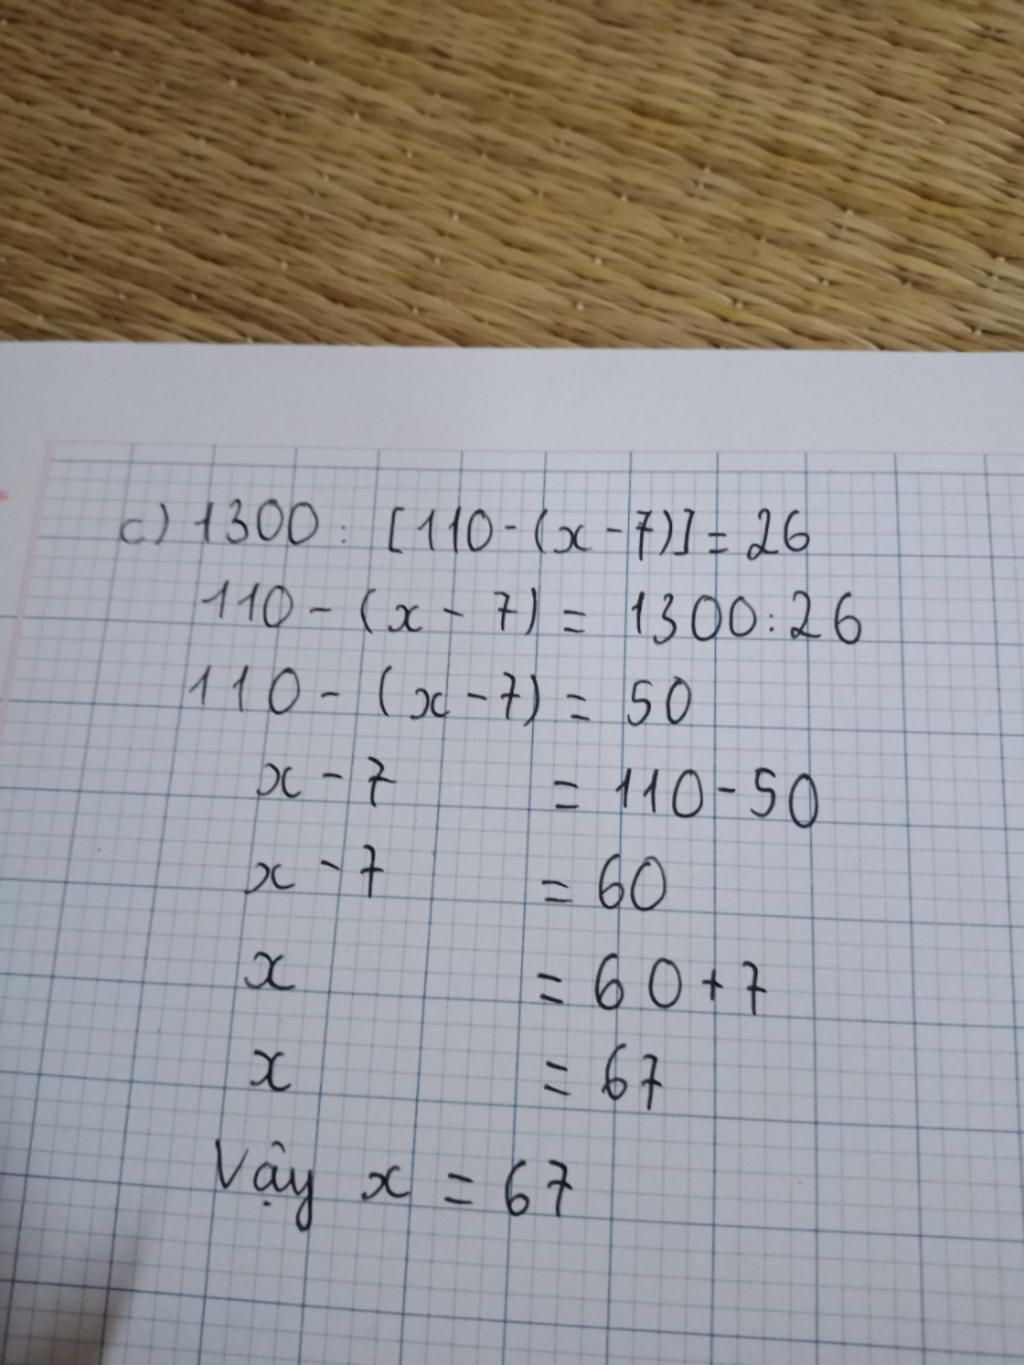 c) 1300 : [110-(x-7)] = 26
110 - (x - 7) = 1300:26
110 - (x - 7) = 50
x - 7 = 110 - 50
x - 7 = 60
x = 60 + 7
x = 67
Vậy x = 67